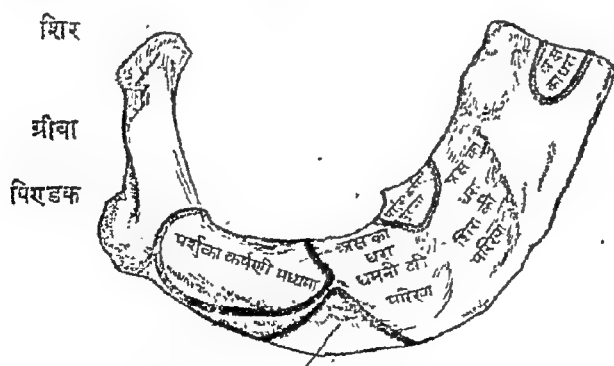 शिर
ग्रीवा
पिण्डक
पर्शुका कर्षणी मध्यमा
अस का
धरा
धमनी की
परिखा
अस का
धरा
शिरा की
परिखा